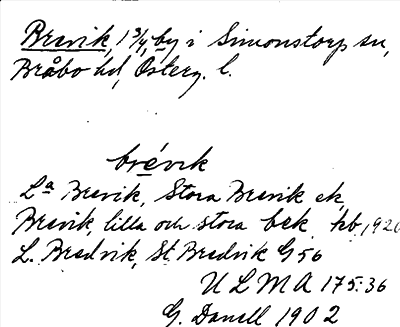 Brevik, 1 3/4, by i Simonstorp sn,
Bråbo hd, Österg. l.
brévik
La Brevik, Stora Brevik ek,
Brevik, lilla och stora bek hb, 1920
L. Bredvik, St Bredvik G 56
U L M A 175:36
G. Danell 1902